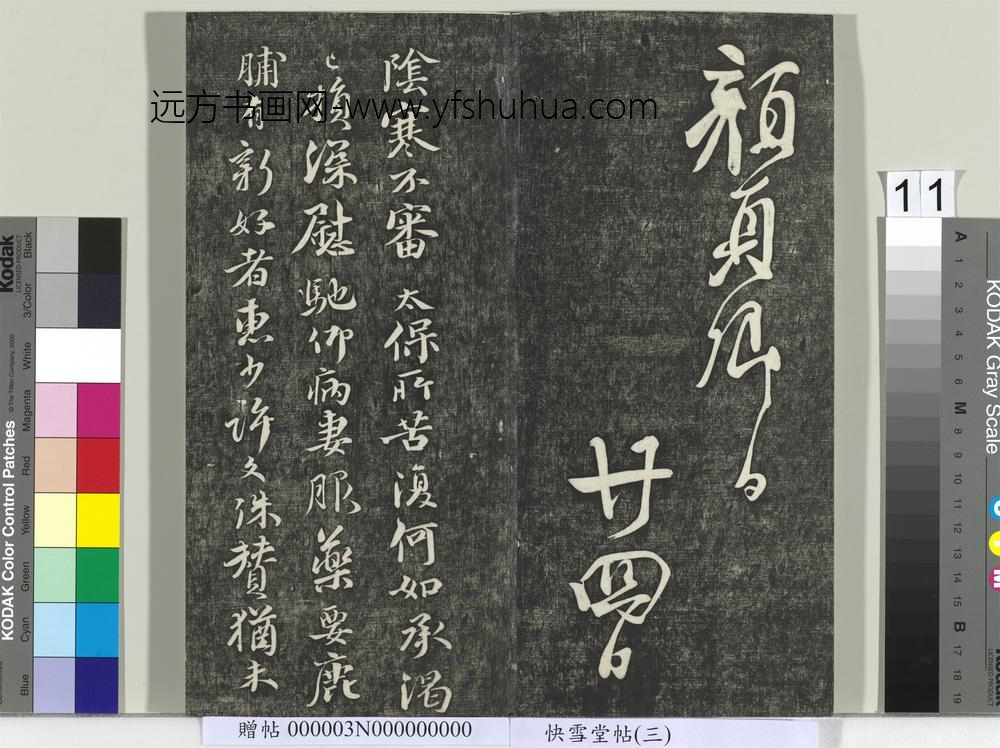 顏真卿白
廿四日
陰寒不審 太保所苦復何如承渴
已損深慰馳仰病妻服藥要鹿
脯有新好者惠少許文殊贊猶未
远方书画网-www.yfshuhua.com
贈帖 000003N000000000
快雪堂帖(三)
11
KODAK Color Control Patches
© The Tiffen Company, 2000
Kodak
LICENSED PRODUCT
Blue
Cyan
Green
Yellow
Red
Magenta
White
3/Color
Black
KODAK Gray Scale
A 1 2 3 4 5 6 M 8 9 10 11 12 13 14 15 B 17 18 19
C
Y
M